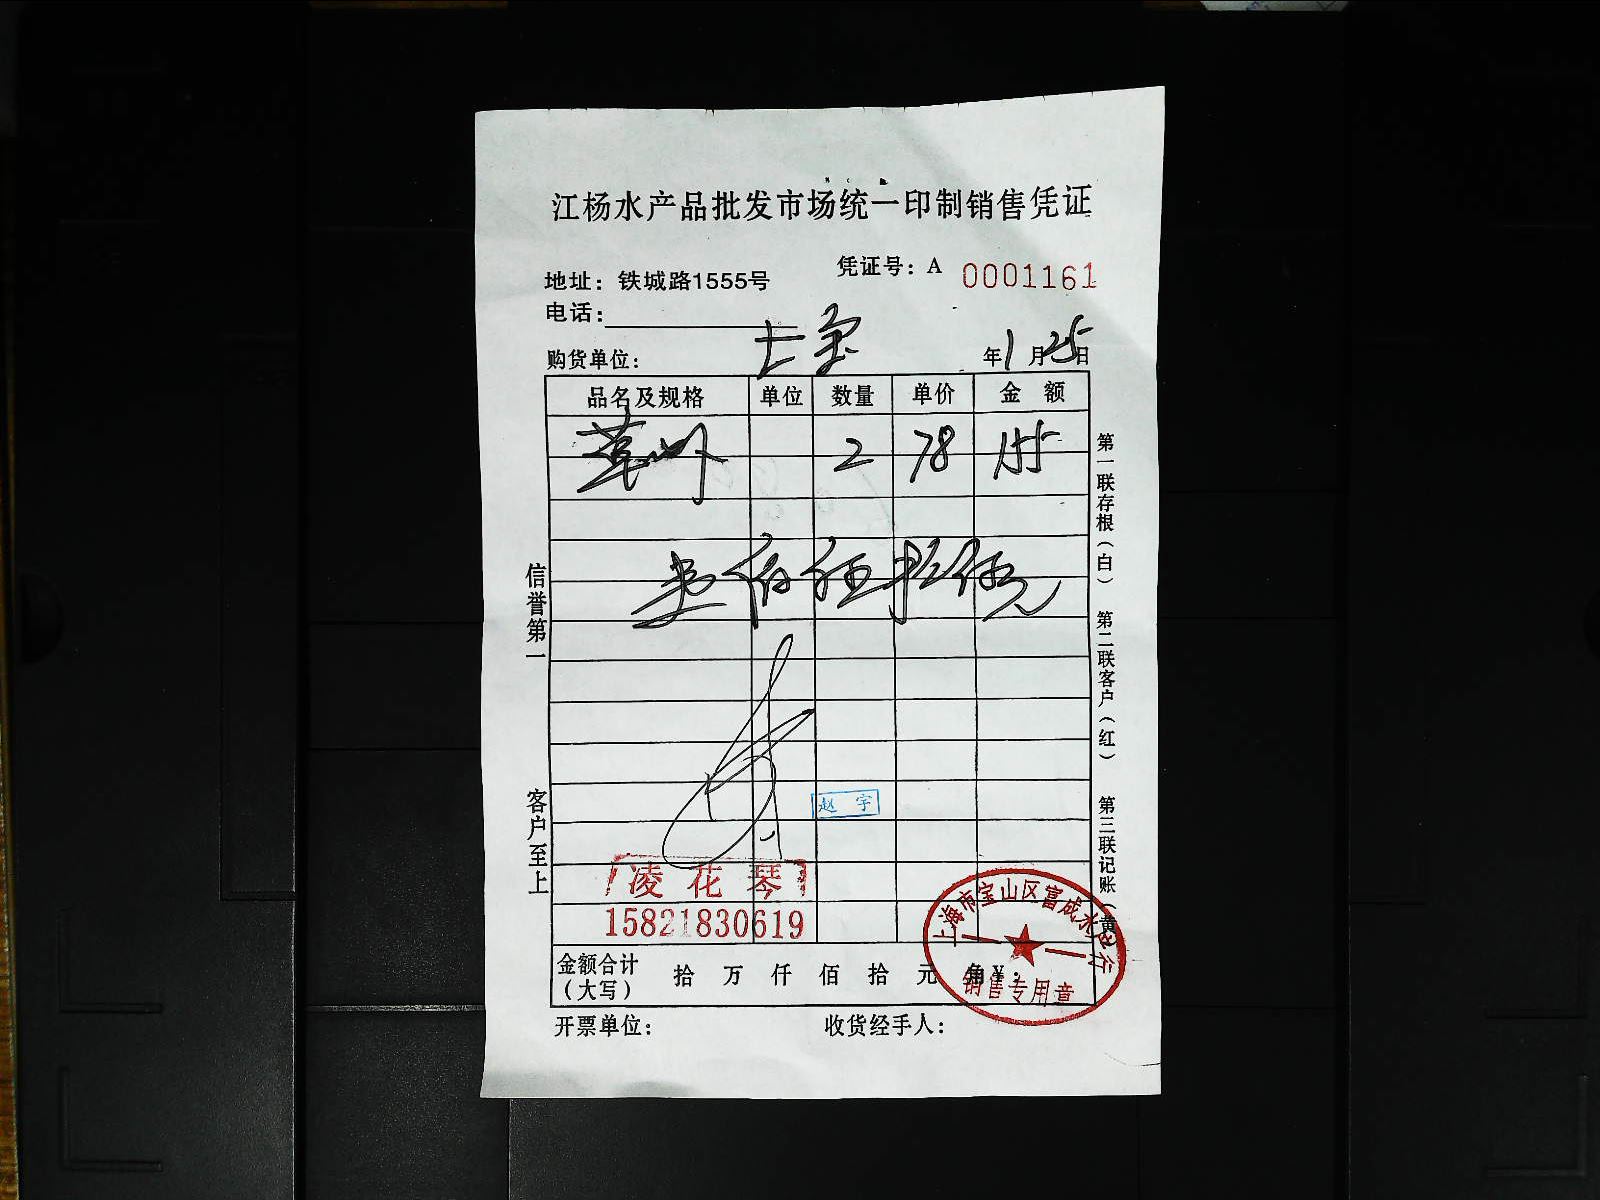 江杨水产品批发市场统一印制销售凭证
凭证号：A 0001161
地址：铁城路1555号
电话：
购货单位： 年1月25日
品名及规格 单位 数量 单价 金额
草虾 2 78 155
壹佰伍拾伍元
赵宇
凌花琴
15821830619
金额合计（大写） 拾 万 仟 佰 拾 元 角 ¥：
开票单位： 收货经手人：
信誉第一
客户至上
第一联存根（白） 第二联客户（红） 第三联记账（黄）
上海市宝山区富成水产行
销售专用章